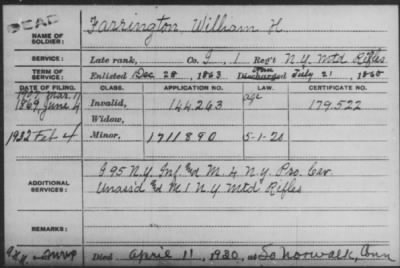 DEAD
NAME OF SOLDIER: Farrington, William H.
SERVICE: Late rank, Co. I, 1 Reg't N.Y. Mtd Rifles
TERM OF SERVICE: Enlisted Dec 28, 1863 Discharged July 21, 1865
DATE OF FILING. CLASS. APPLICATION NO. LAW. CERTIFICATE NO.
1907 Mar. 11 age
1869, June 4 Invalid, 144,263 179,522
Widow,
1932 Feb 4 Minor, 1711890 5-1-20
ADDITIONAL SERVICES: I 95 N.Y. Inf. & M. 4 N.Y. Pro. Cav.
Unas'd & M 1 N Y Mtd Rifles
REMARKS:
Died April 11, 1930, at So Norwalk, Conn